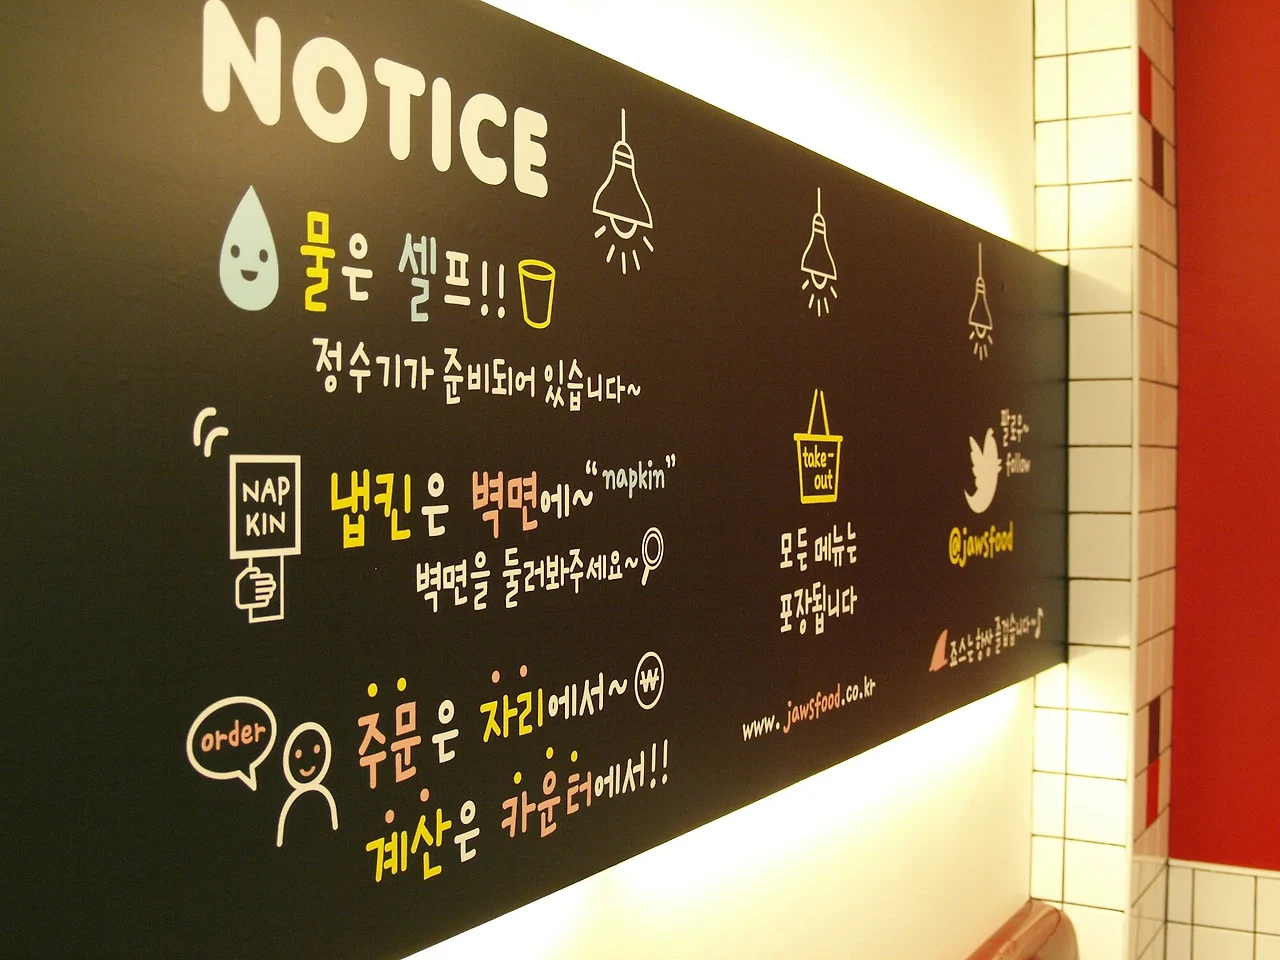 NOTICE
물은 셀프!!
정수기가 준비되어 있습니다~
NAP
KIN
냅킨은 벽면에~ "napkin"
벽면을 둘러봐주세요~
order
주문은 자리에서~ ₩
계산은 카운터에서!!
take-
out
모든 메뉴는
포장됩니다
www.jawsfood.co.kr
팔로우~
follow
@jawsfood
죠스는 항상 즐겁습니다~♪